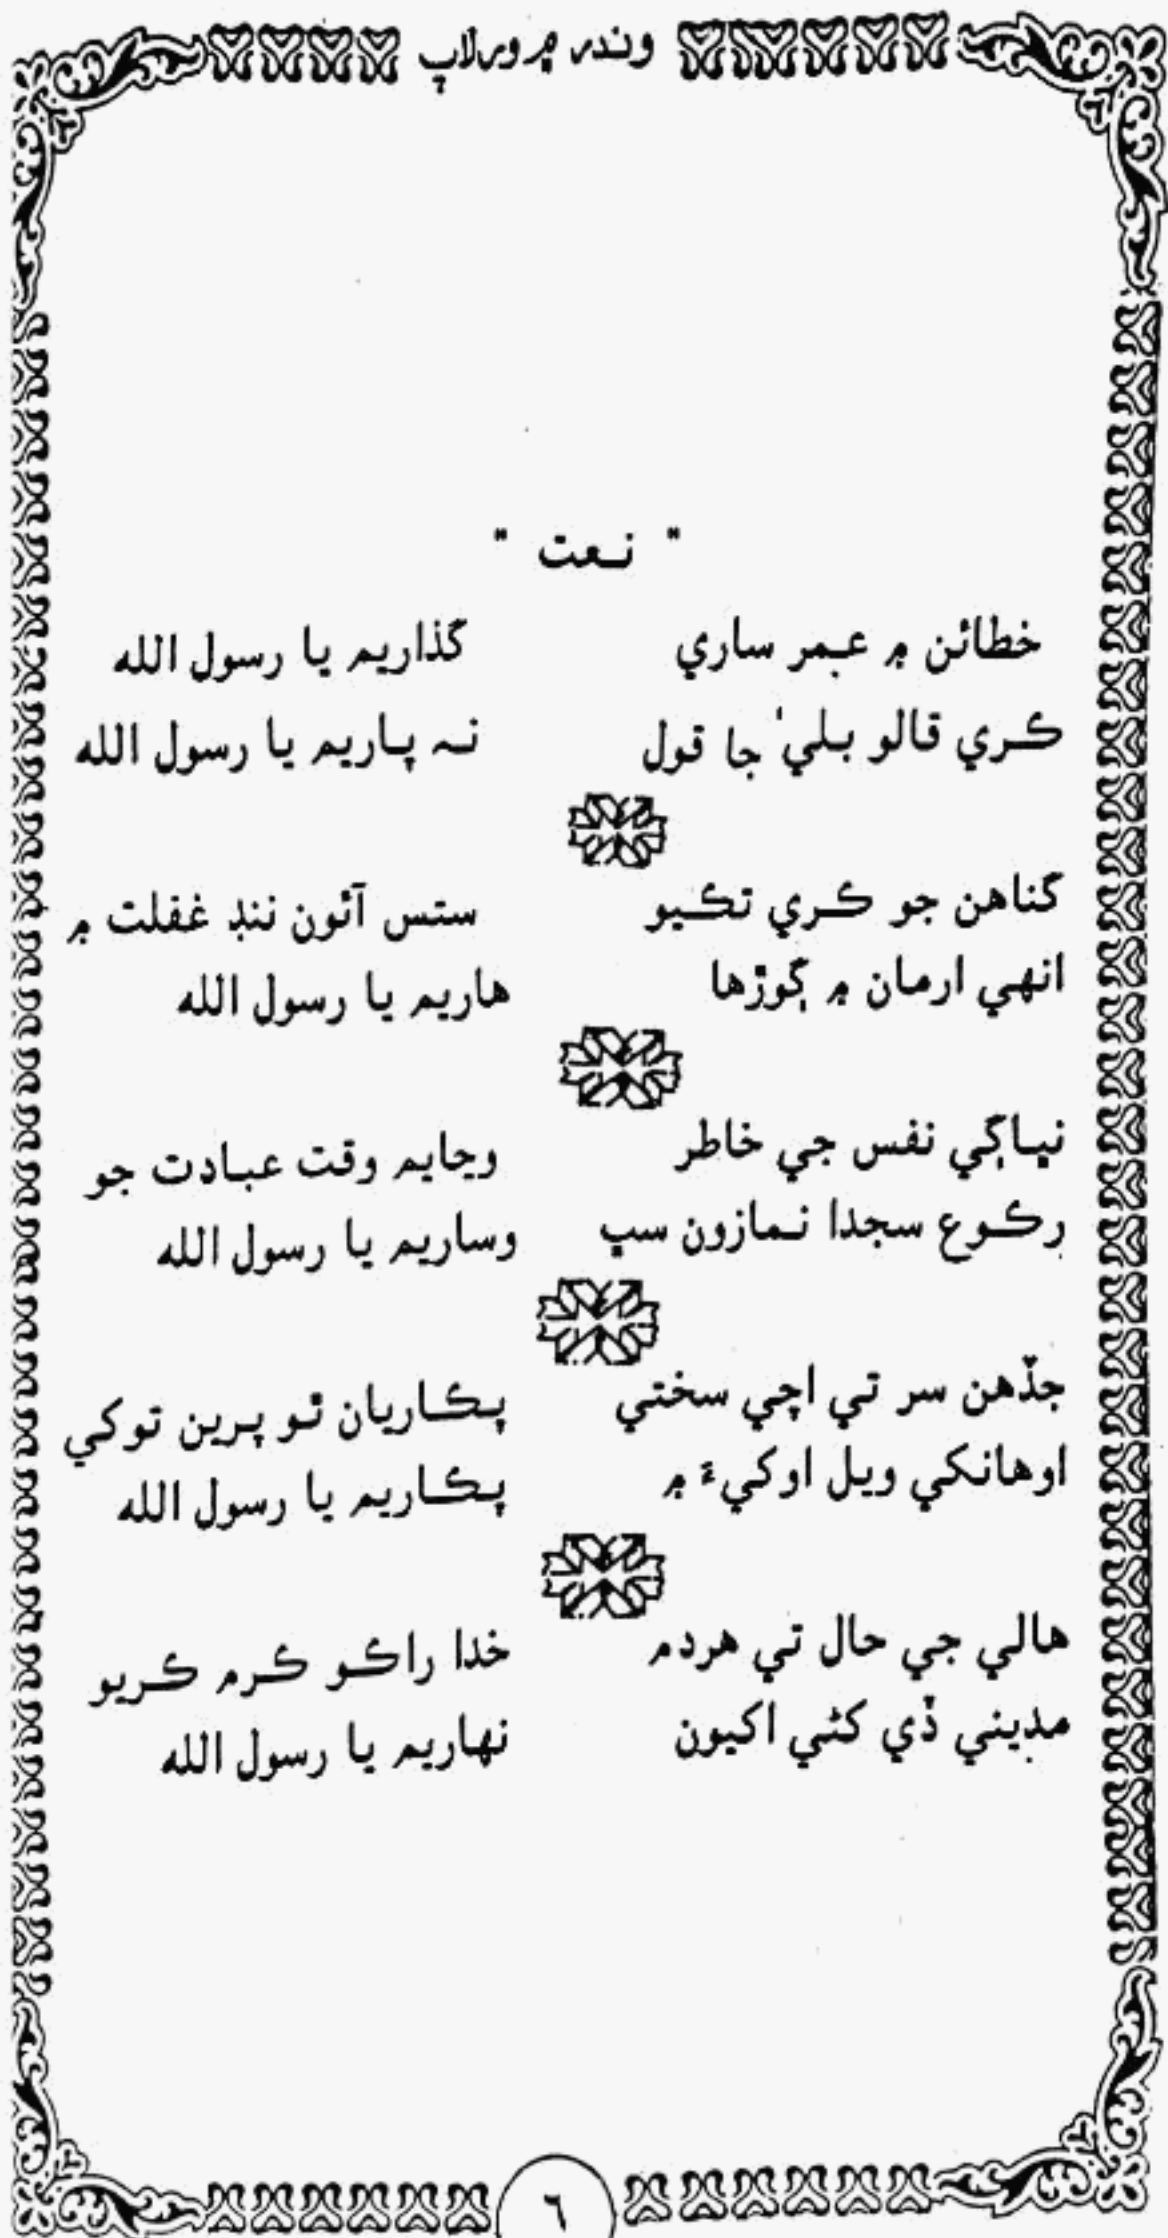 وندر ۾ ورلاپ
" نعت "
خطائن ۾ عمر ساري گذاريم يا رسول الله
ڪري قالو بليٰ جا قول نہ پاريم يا رسول الله
گناهن جو ڪري تڪيو ستس آئون ننڊ غفلت ۾
انهي ارمان ۾ ڳوڙها هاريم يا رسول الله
نڀاڳي نفس جي خاطر وڃايم وقت عبادت جو
رڪوع سجدا نمازون سڀ وساريم يا رسول الله
جڏهن سر تي اچي سختي پڪاريان ٿو پرين توکي
اوهانکي ويل اوکيءَ ۾ پڪاريم يا رسول الله
هالي جي حال تي هردم خدا راڪو ڪرم ڪريو
مديني ڏي کڻي اکيون نهاريم يا رسول الله
٦